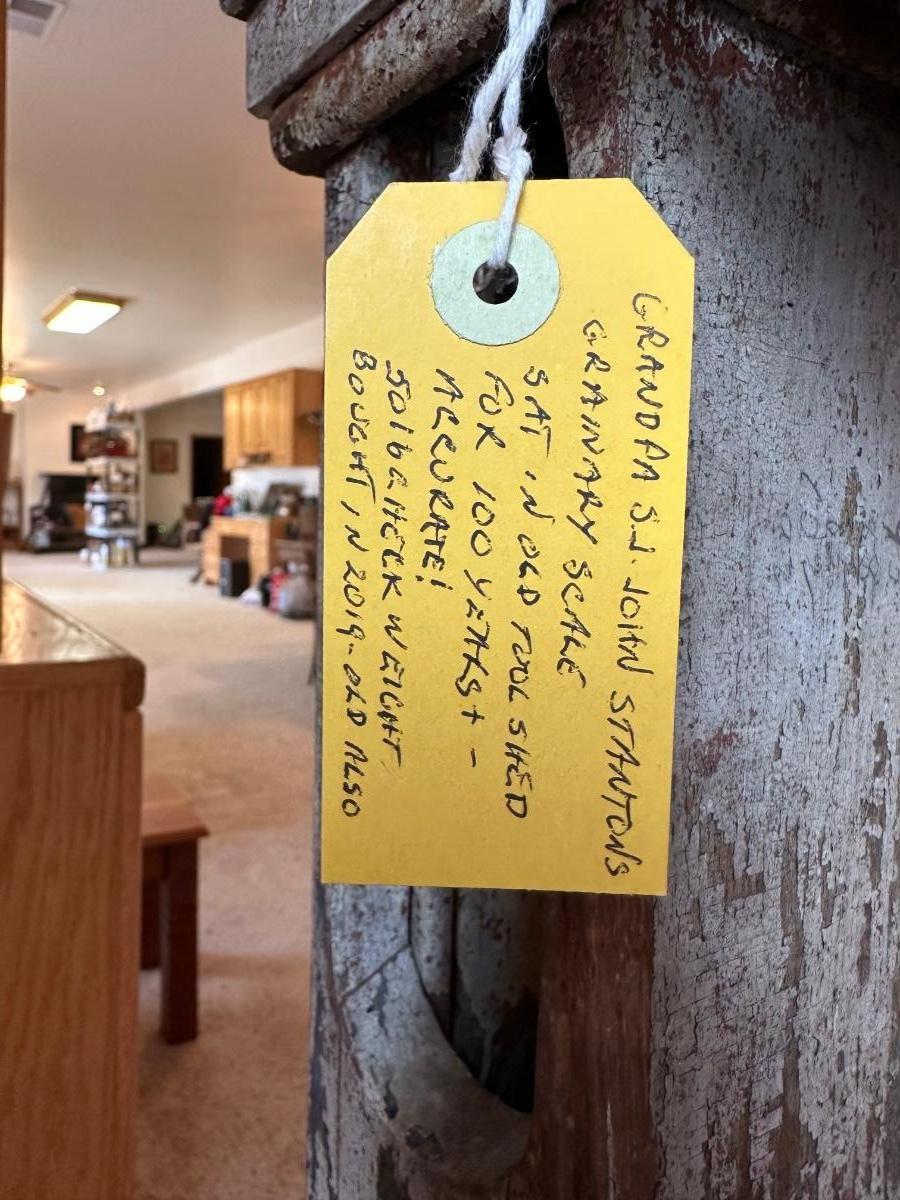 GRANDPA S.J. JOHN STANTONS
GRAINARY SCALE
SAT IN OLD TOOL SHED
FOR 100 YEARS + -
ACCURATE!
50lb CHECK WEIGHT
BOUGHT IN 2019 - OLD ALSO